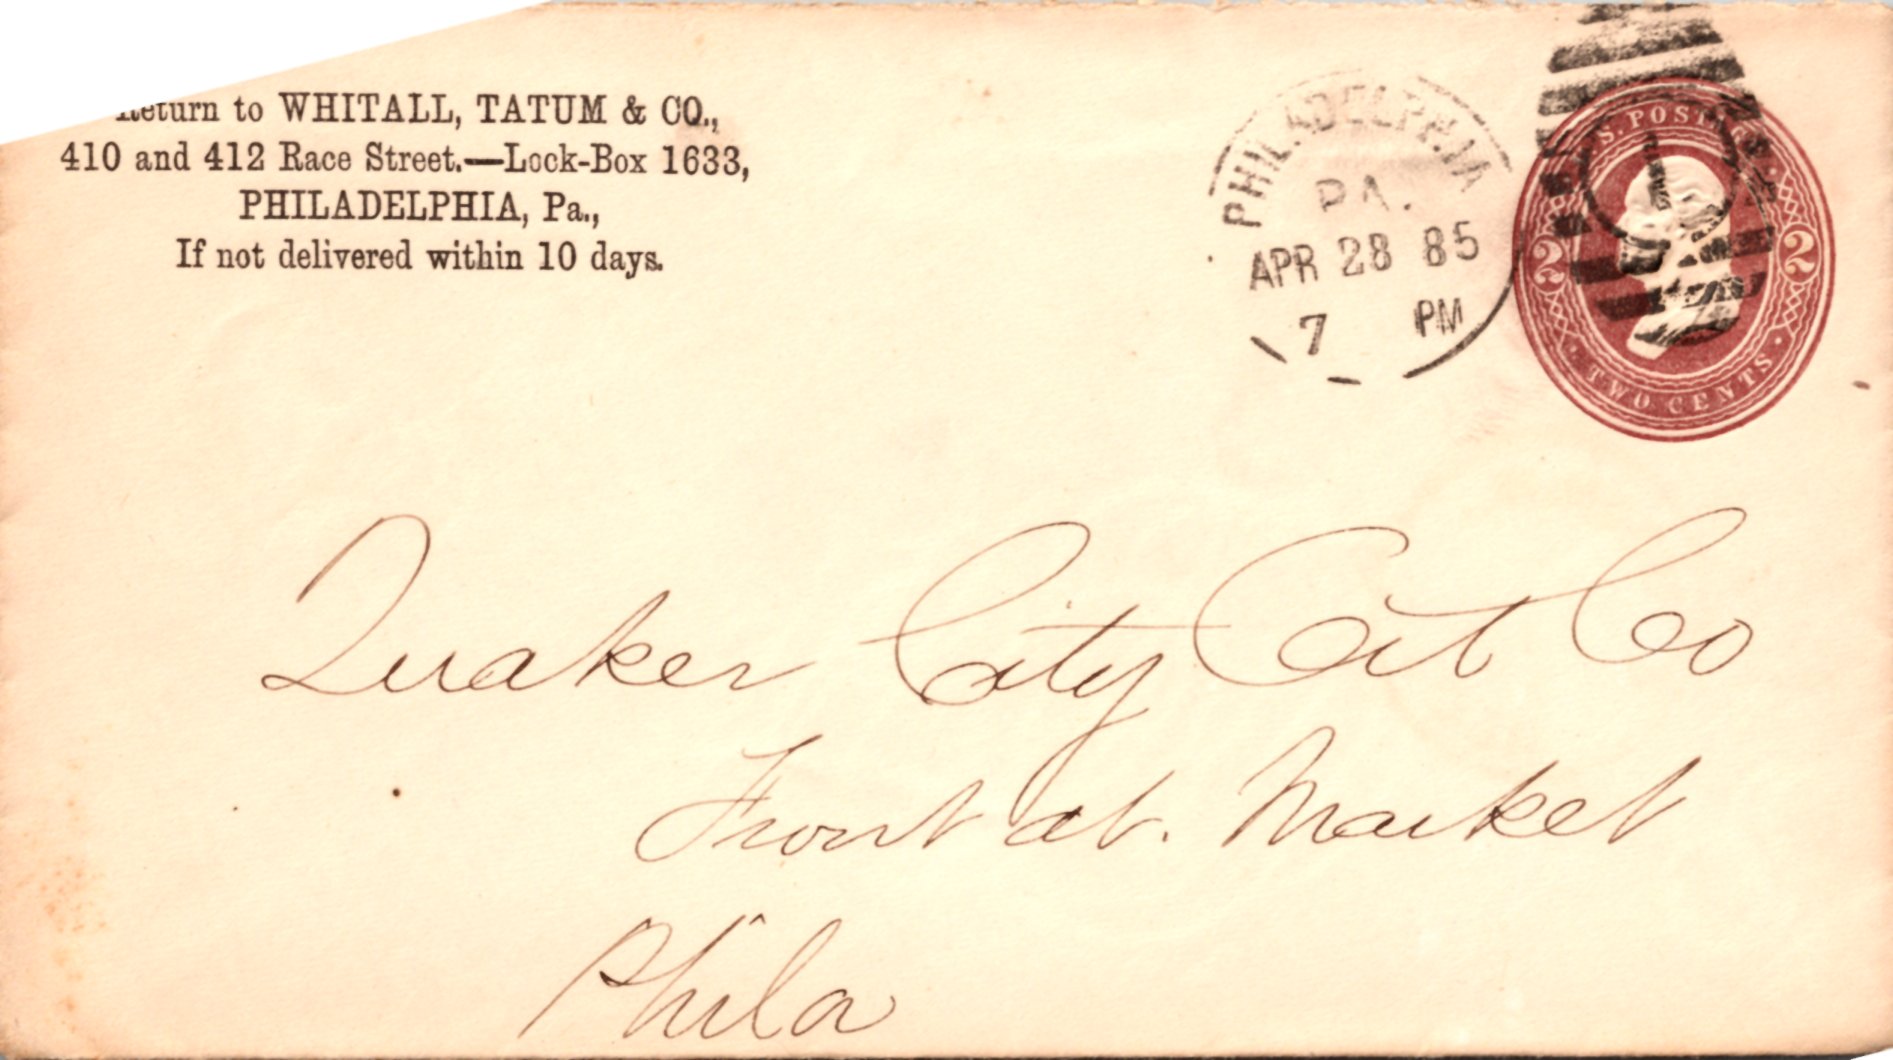 Return to WHITALL, TATUM & CO.,
410 and 412 Race Street.—Lock-Box 1633,
PHILADELPHIA, Pa.,
If not delivered within 10 days.
PHILADELPHIA
PA.
APR 28 85
7 PM
1
S. POSTAGE
2 2
TWO CENTS
Quaker City Cit Co
Front ab. Market
Phila